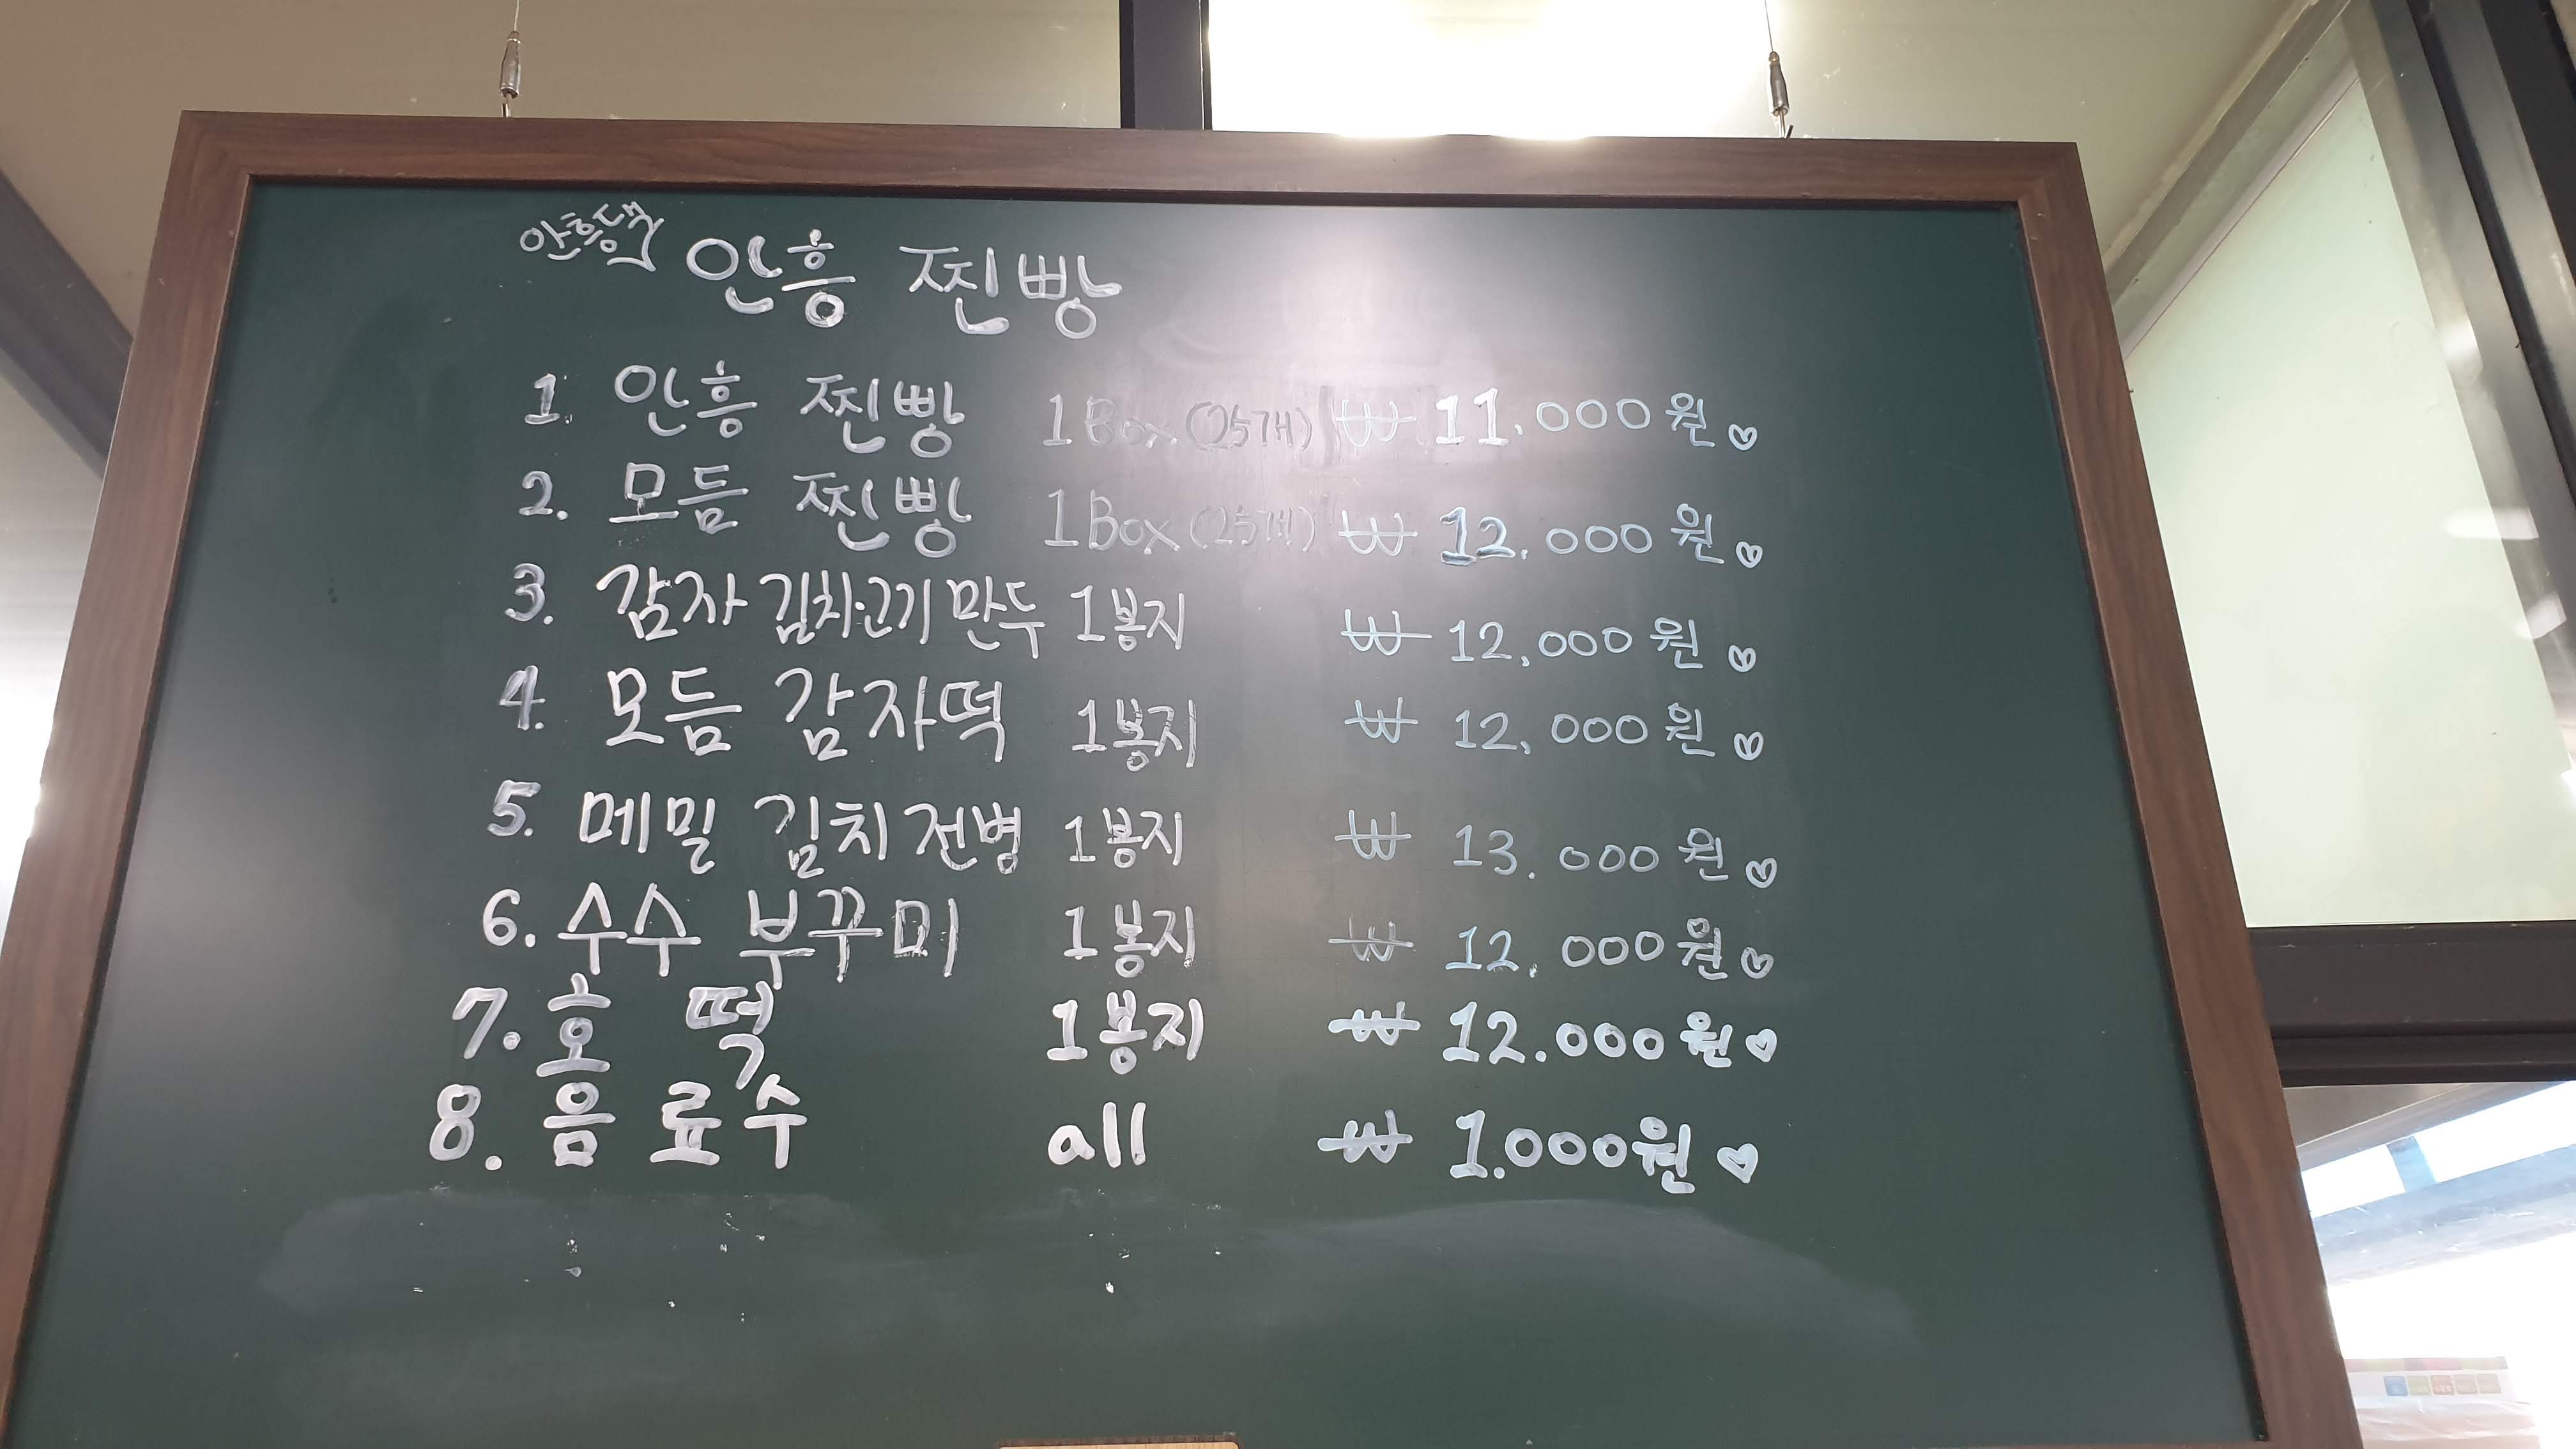 안흥댁 안흥 찐빵
1. 안흥 찐빵 1Box (25개) ₩ 11.000원♡
2. 모듬 찐빵 1Box (25개) ₩ 12.000원♡
3. 감자 김치·고기 만두 1봉지 ₩ 12.000원♡
4. 모듬 감자떡 1봉지 ₩ 12.000원♡
5. 메밀 김치 전병 1봉지 ₩ 13.000원♡
6. 수수 부꾸미 1봉지 ₩ 12.000원♡
7. 호 떡 1봉지 ₩ 12.000원♡
8. 음료수 all ₩ 1.000원♡